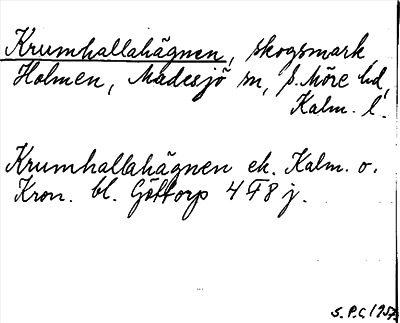 Krumhallahägnen, skogsmark
Holmen, Madesjö sn, S. Möre hd,
Kalm. l.
Krumhallahägnen ek. Kalm. o.
Kron. bl. Göttorp 4 F 8 j.
S. P. C. 195